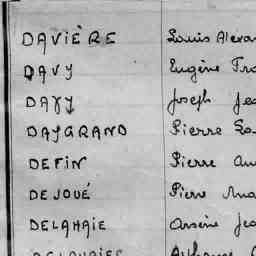 DAVIÈRE Louis Alexan
DAVY Eugène Fra
DAVY Joseph Jea
DAYGRAND Pierre
DEFIN Pierre
DEJOUÉ Pierre
DELAHAIE Arsène Jea